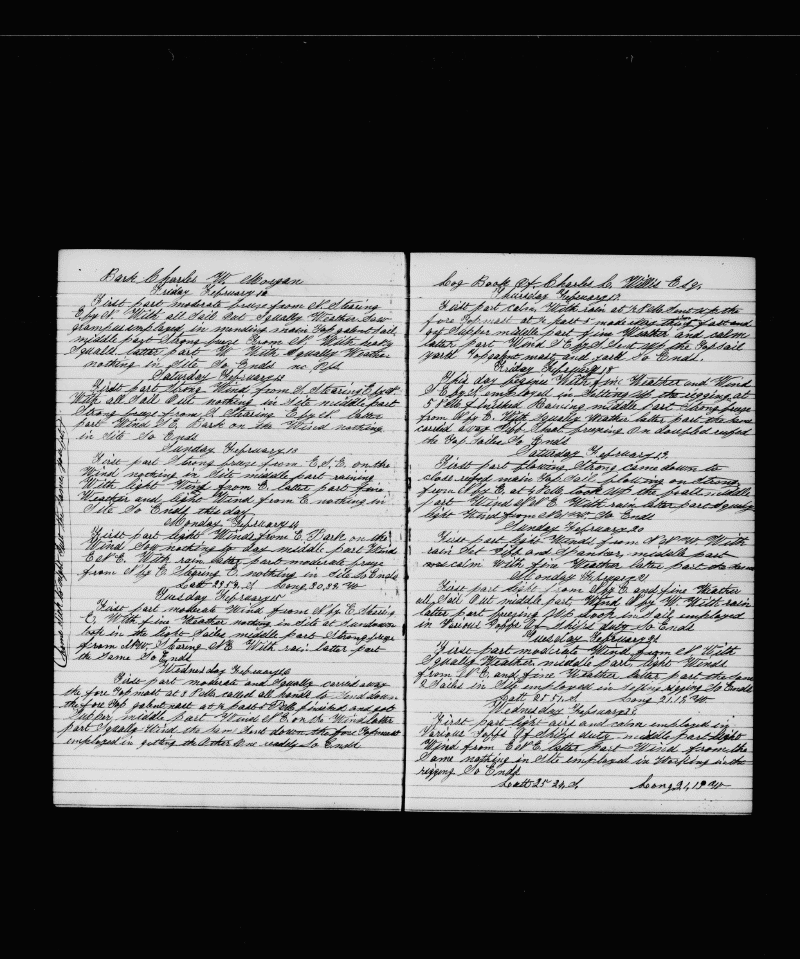 Bark Charles W. Morgan
Friday February 11
First part moderate breeze from N Stearing
E by N With all Sail Out Squally Weather Saw
grampus employed in mending main Top galant Sail
middle part Strong breeze From N With heavy
Squalls latter part W With Squally Weather
nothing in Site So Ends
Saturday February 12
First part Strong Wind from N Stearing E by N
With all Sail Out nothing in Site middle part
Strong breeze from N Stearing E by N latter
part Wind S E Bark on the Wind nothing
in Site So Ends
Sunday February 13
First part Strong breeze from E.S.E. on the
Wind nothing in Site middle part raining
With light Wind from E. latter part fine
Weather and light Wind from E nothing in
Site So Ends this day
Monday February 14
First part light Winds from E Bark on the
Wind Soy nothing to day middle part Wind
E N E. With rain latter part moderate breeze
from N by E nothing in Site So Ends
Latt Long 30,32 W
Tuesday February 15
First part moderate Wind from N by E Stearing
E, With fine Weather nothing in Site at Sundown
took in the light Sailes middle part Strong breeze
from N.W. Stearing N E With rain latter part
the Same So Ends
Wednesday February 16
First part moderate and Squally carried away
the fore Top mast at 3 Bells called all hands to Send down
the fore Top galant mast at ½ past 5 Bells finished and got
Supper, middle part Wind N E on the Wind latter
part Squally Wind the Same Send down the fore Topmast
employed in getting the Other One ready So Ends
Log Book Of Charles L. Willis Esq.
Thursday February 17
First part calm With rain at 7 Bells Sent up the
fore Topmast at ½ past 5 made every thing fast and
got Supper middle part fine Weather and calm
latter part Wind S E by S Sent Up the Top Sail
yard Top galant mast and yard So Ends.
Friday February 18
This day begins With fine Weather and Wind
S E by S employed in Setting Up the rigging at
5 Bells finished middle part Strong breeze
from N by E. With Squally Weather latter part the Same
carried away Jibb Sheet breezing On doubled reefed
the Top Sailes So Ends
Saturday February 19
First part blowing Strong came down to
close reefed main Top Sail blowing on Strong
from N by E. at 4 Bells took Up the middle
part Wind N N E With rain latter part Squally
light Wind from N N W So Ends
Sunday February 20
First part light Winds from N N W With
rain Set Jibb and Spanker, middle part
was calm With fine Weather latter part the Same
Monday February 21
First part light from N by E and fine Weather
all Sail Out middle part, Wind N by W With rain
latter part breezing Up took in Sail employed
in Various Jobbs On Ships duty So Ends
Tuesday February 22
First part moderate Wind from N With
Squally Weather middle part, light Winds
from N E and fine Weather latter part the Same
2 Sailes in Site employed in rigging So Ends
Latt 25.51, S Long 21.15 W
Wednesday February 23
First part light aire and calm employed in
Various Jobbs Of Ships duty middle part light
Wind from E N E latter part Wind from the
Same nothing in Site employed in the
rigging So Ends
Latt 25 24, S Long 21,19 W